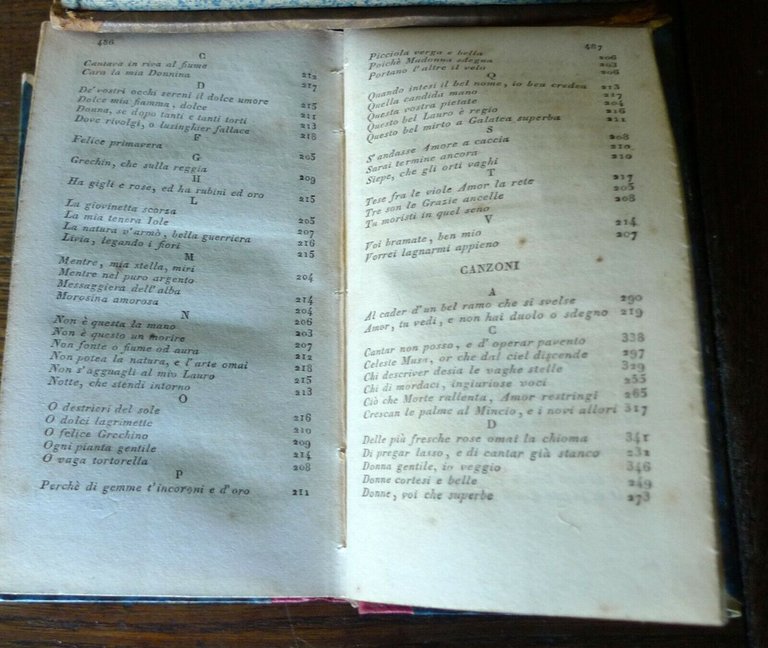 486
C
Cantava in riva al fiume 212
Cara la mia Donnina 217
D
De' vostri occhi sereni il dolce umore 215
Dolce mia fiamma, dolce 211
Donna, se dopo tanti e tanti torti 213
Dove rivolgi, o lusinghier fallace 218
F
Felice primavera 205
G
Grechin, che sulla reggia 209
H
Ha gigli e rose, ed ha rubini ed oro 215
L
La giovinetta scorza 205
La mia tenera Iole 207
La natura v'armò, bella guerriera 216
Livia, legando i fiori 215
M
Mentre, mia stella, miri 204
Mentre nel puro argento
Messaggiera dell'alba 214
Morosina amorosa 204
N
Non è questa la mano 206
Non è questo un morire 203
Non fonte o fiume od aura 207
Non potea la natura, e l'arte omai 212
Non s'agguagli al mio Lauro 218
Notte, che stendi intorno 215
213
O
O destrieri del sole 216
O dolci lagrimette 210
O felice Grechino 209
Ogni pianta gentile 214
O vaga tortorella 208
P
Perchè di gemme t'incoroni e d'oro 211
487
Picciola verga e bella 206
Poichè Madonna sdegna 203
Portano l'altre il velo 206
Q
Quando intesi il bel nome, io ben credea 213
Quella candida mano 217
Questa vostra pietate 204
Questo bel Lauro è regio 216
Questo bel mirto a Galatea superba 211
S
S'andasse Amore a caccia 208
Sarai termine ancora 210
Siepe, che gli orti vaghi 210
T
Tese fra le viole Amor la rete 217
Tre son le Grazie ancelle 205
Tu moristi in quel seno 208
V
Voi bramate, ben mio 214
Vorrei lagnarmi appieno 207
CANZONI
A
Al cader d'un bel ramo che si svelse 290
Amor, tu vedi, e non hai duolo o sdegno 219
C
Cantar non posso, e d'operar pavento 338
Celeste Musa, or che dal ciel discende 297
Chi descriver desia le vaghe stelle 329
Chi di mordaci, ingiuriose voci 255
Ciò che Morte rallenta, Amor restringi 265
Crescan le palme al Mincio, e i novi allori 317
D
Delle più fresche rose omai la chioma 341
Di pregar lasso, e di cantar già stanco 232
Donna gentile, io veggio 346
Donne cortesi e belle 249
Donne, voi che superbe 273